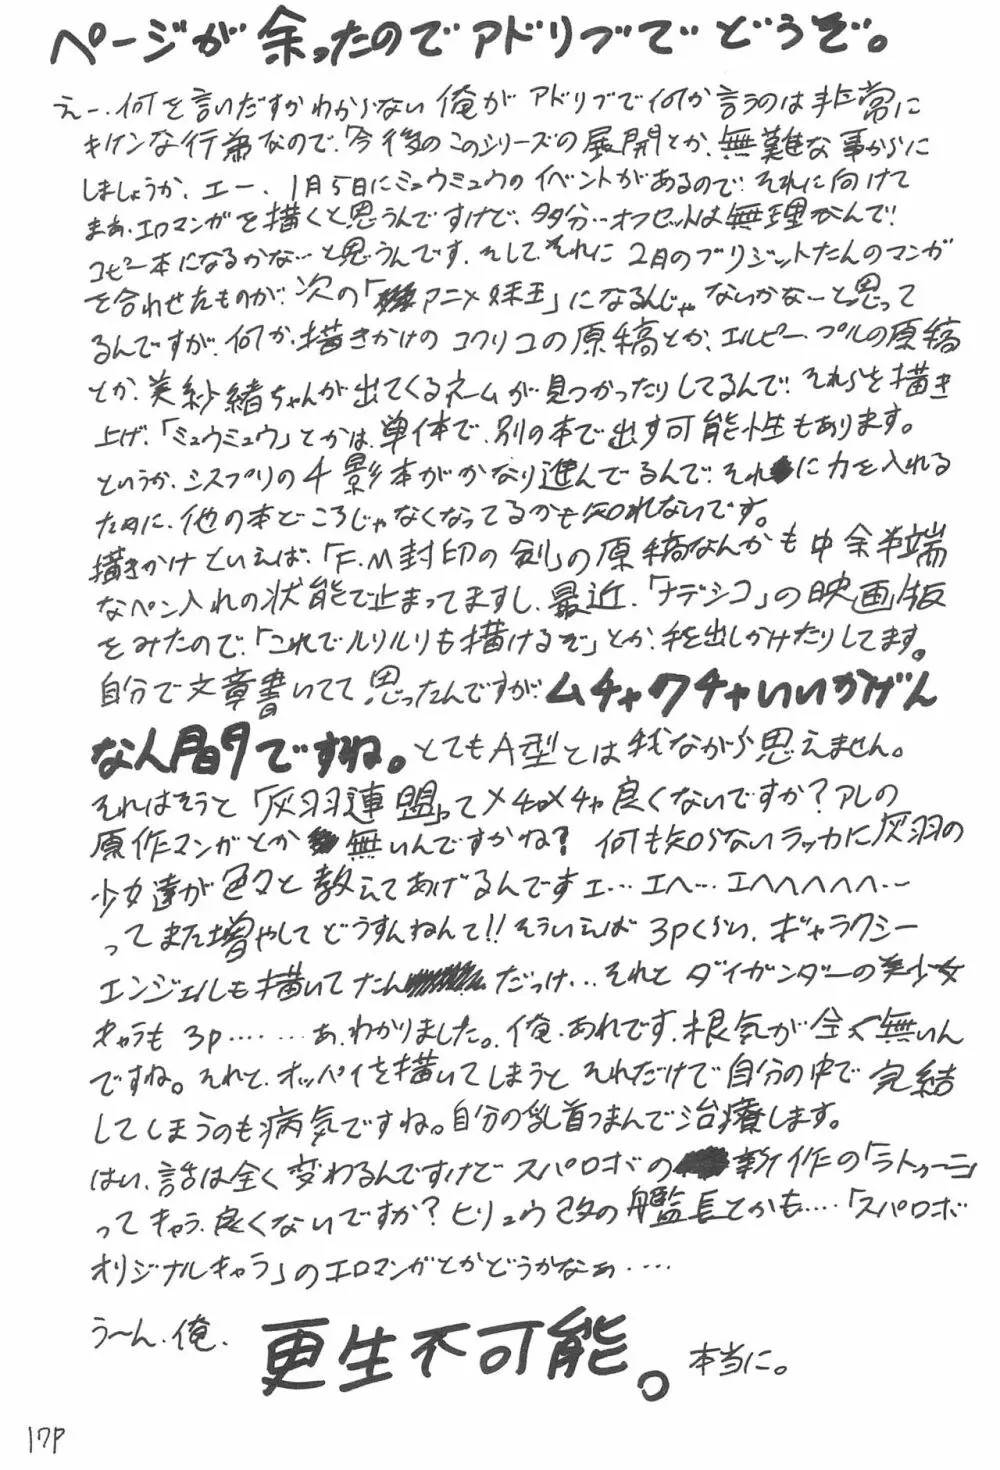 ページが余ったのでアドリブでどうぞ。
えー、何を言いだすかわからない俺がアドリブで何か言うのは非常に
キケンな行為なので、今後のこのシリーズの展開とか、無難な事からに
しましょうか、エー、1月5日にミュウミュウのイベントがあるので、それに向けて
まあ、エロマンガを描くと思うんですけど、多分…オフセットは無理なんで!
コピー本になるかな…と思うんです。そして、それに2月のブリジットたんのマンガ
を合わせたものが、次の「アニメ妹王」になるんじゃないかなーと思って
るんですが、何か、描きかけのコクリコの原稿とか、エルピー・プルの原稿
とか、美紗緒ちゃんが出てくるネームが見つかったりしてるんで、それらを描き
上げ、「ミュウミュウ」とかは、単体で、別の本で出す可能性もあります。
というか、シスプリの千影本がかなり進んでるんで、それに力を入れる
ために、他の本どころじゃなくなってるかも知れないです。
描きかけといえば、「F.M封印の剣」の原稿なんかも中余半端
なペン入れの状態で止まってますし、最近、「ナデシコ」の映画版
をみたので、「これでルリルリも描けるぞ」とか、手を出しかけたりしてます。
自分で文章書いてて思ったんですが、ムチャクチャいいかげん
な人間ですね。とてもA型とは我ながら思えません。
それはそうと「灰羽連盟」ってメチャメチャ良くないですか?アレの
原作マンガとか無いんですかね? 何も知らないラッカに灰羽の
少女達が色々と教えてあげるんですェ…エヘ…エヘヘヘヘヘ…
ってまた増やしてどうすんねんて!!そういえば3pくらい、ギャラクシー
エンジェルも描いてたんだっけ…それとダイガンダーの美少女
キャラも3p……あ、わかりました。俺、あれです、根気が全く無いん
ですね。それと、オッパイを描いてしまうとそれだけで自分の中で完結
してしまうのも病気ですね。自分の乳首つまんで治療します。
はい、話は全く変わるんですけどスパロボの新作の「ラトゥーニ」
ってキャラ、良くないですか?ヒリュウ改の艦長とかも…「スパロボ
オリジナルキャラ」のエロマンガとかどうかなぁ…
う〜ん、俺、更生不可能。本当に。
17P